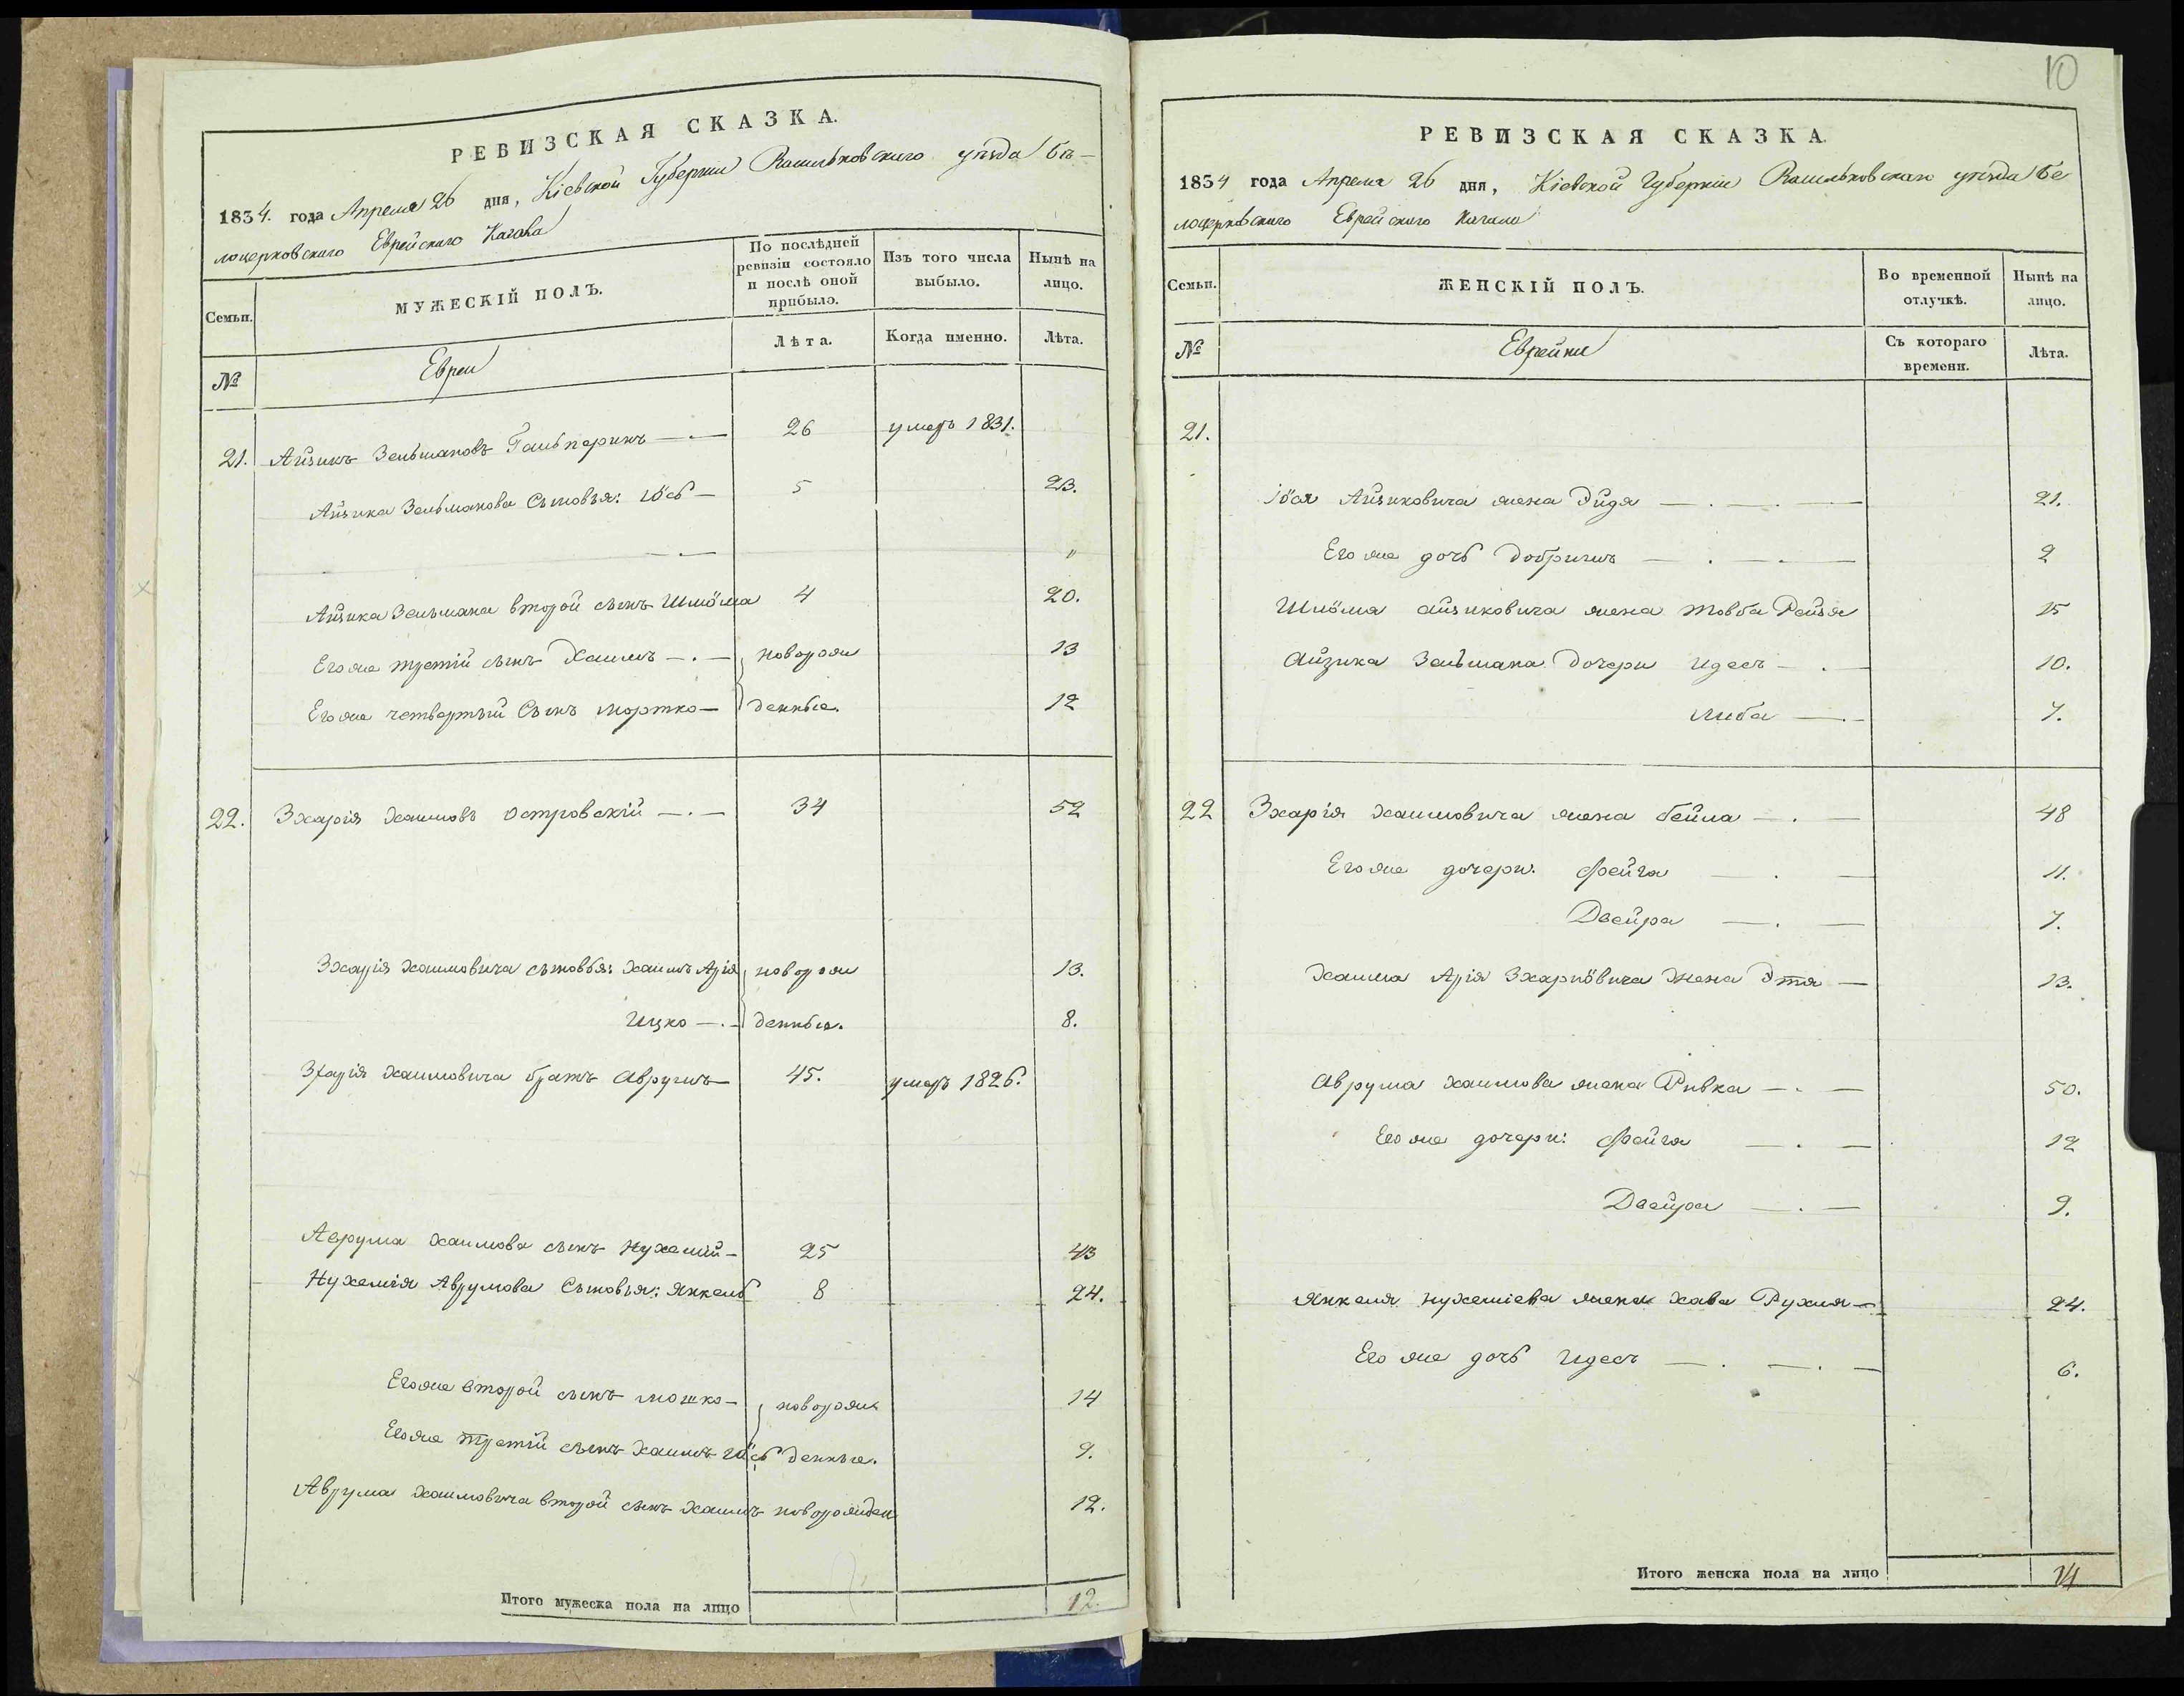 РЕВИЗСКАЯ СКАЗКА.
1834. года Апреля 26 дня, Кіевской Губерніи Васильковскаго уѣзда бѣ-
лоцерковскаго Еврейскаго Кагала
Семьи. МУЖЕСКІЙ ПОЛЪ. По послѣдней ревизіи состояло и послѣ оной прибыло. Изъ того числа выбыло. Нынѣ на лицо.
№ Евреи Лѣта. Когда именно. Лѣта.
21. Айзикъ Зельмановъ Гальперинъ — . — 26 умеръ 1831.
Айзика Зельманова Сыновья: Іось — 5 23.
— . — "
Айзика Зельмана второй сынъ Шлёма 4 20.
Его же третій сынъ Хаимъ — . — новорож 13
Его же четвертый Сынъ Мортко — денные. 12
22. Зхарія Хаимовъ Островскій — . — 34 52
Зхарія Хаимовича сыновья: Хаимъ Арія новорож 13.
Ицко — . — денные. 8.
Зхарія Хаимовича братъ Аврумъ 45. умеръ 1826.
Аврума Хаимова сынъ Нухемій — 25 43
Нухемія Аврумова Сыновья: Янкель 8 24.
Его же второй сынъ Мошко — новорож 14
Его же третій сынъ Хаимъ Іось денные. 9.
Аврума Хаимовича второй сынъ Хаимъ новорожден 12.
Итого мужеска пола на лицо 12.
10
РЕВИЗСКАЯ СКАЗКА.
1834 года Апреля 26 дня, Кіевской Губерніи Васильковскаго уѣзда бе
лоцерковскаго Еврейскаго Кагала
Семьи. ЖЕНСКІЙ ПОЛЪ. Во временной отлучкѣ. Нынѣ на лицо.
№ Еврейки Съ котораго времени. Лѣта.
21.
Іося Айзиковича жена Эйдя — . — . — 21.
Его же дочь Добрышъ — . — . — 2
Шлёма Айзиковича жена Товба Рейзя 15
Айзика Зельмана дочери Идесъ — . — 10.
Либа — . — 7.
22 Зхарія Хаимовича жена Бейла — . — 48
Его же дочери: Фейга — . — 11.
Двейра — . — 7.
Хаима Арія Зхаріовича Жена Этя — 13.
Аврума Хаимова жена Ривка — . — 50.
Его же дочери: Фейга — . — 12
Двейра — . — 9.
Янкеля Нухеміева жена Хава Рухля — 24.
Его же дочь Идесъ — . — . — 6.
Итого женска пола на лицо 14